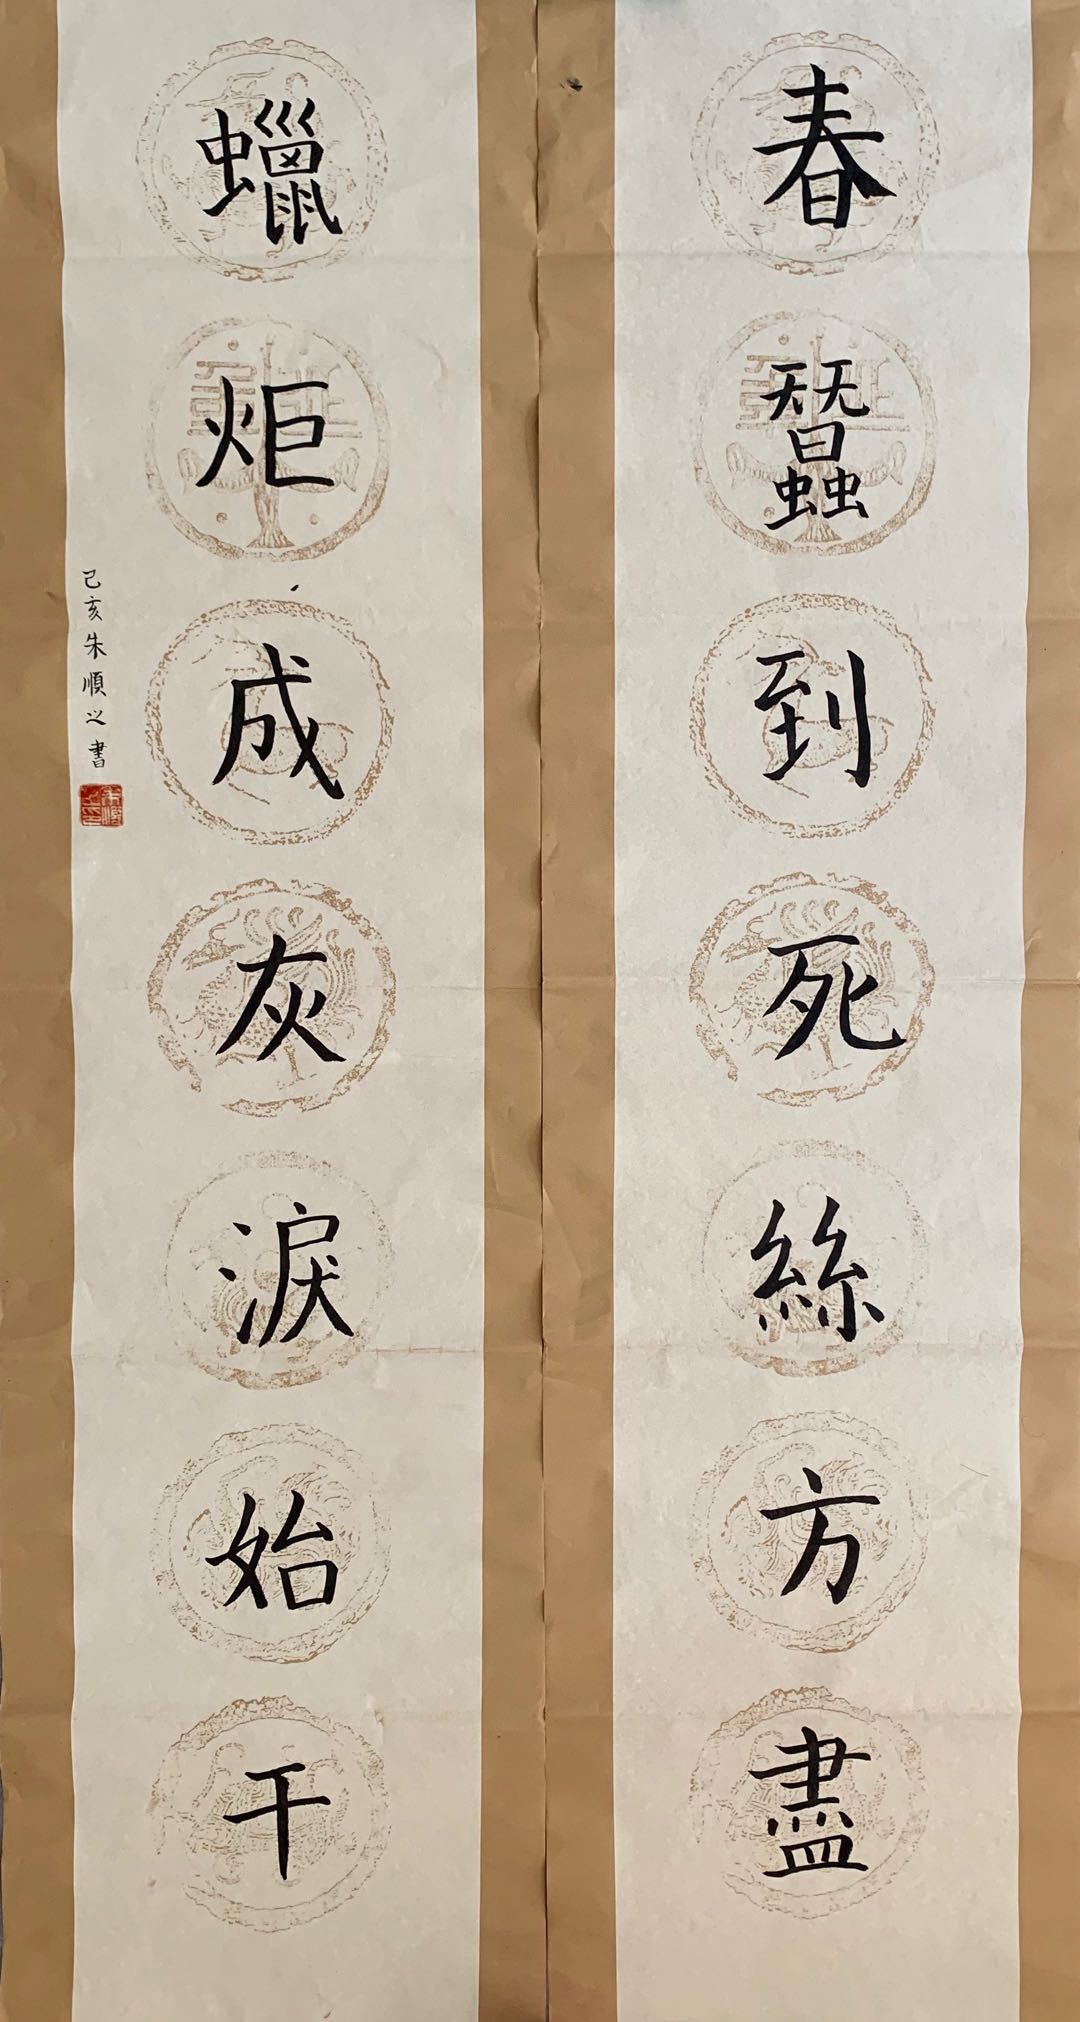 春蠶到死絲方盡
蠟炬成灰淚始干
己亥朱順之書